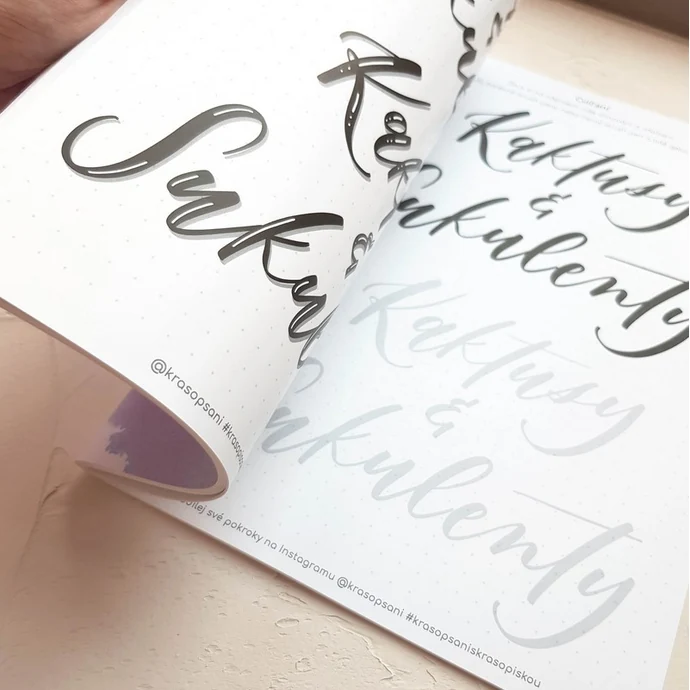 Suku
@krasopsani
Kaktusy
&
Sukulenty
Kaktusy
&
Sukulenty
své pokroky na Instagramu @krasopsani #krasopsaniskrasopiskou